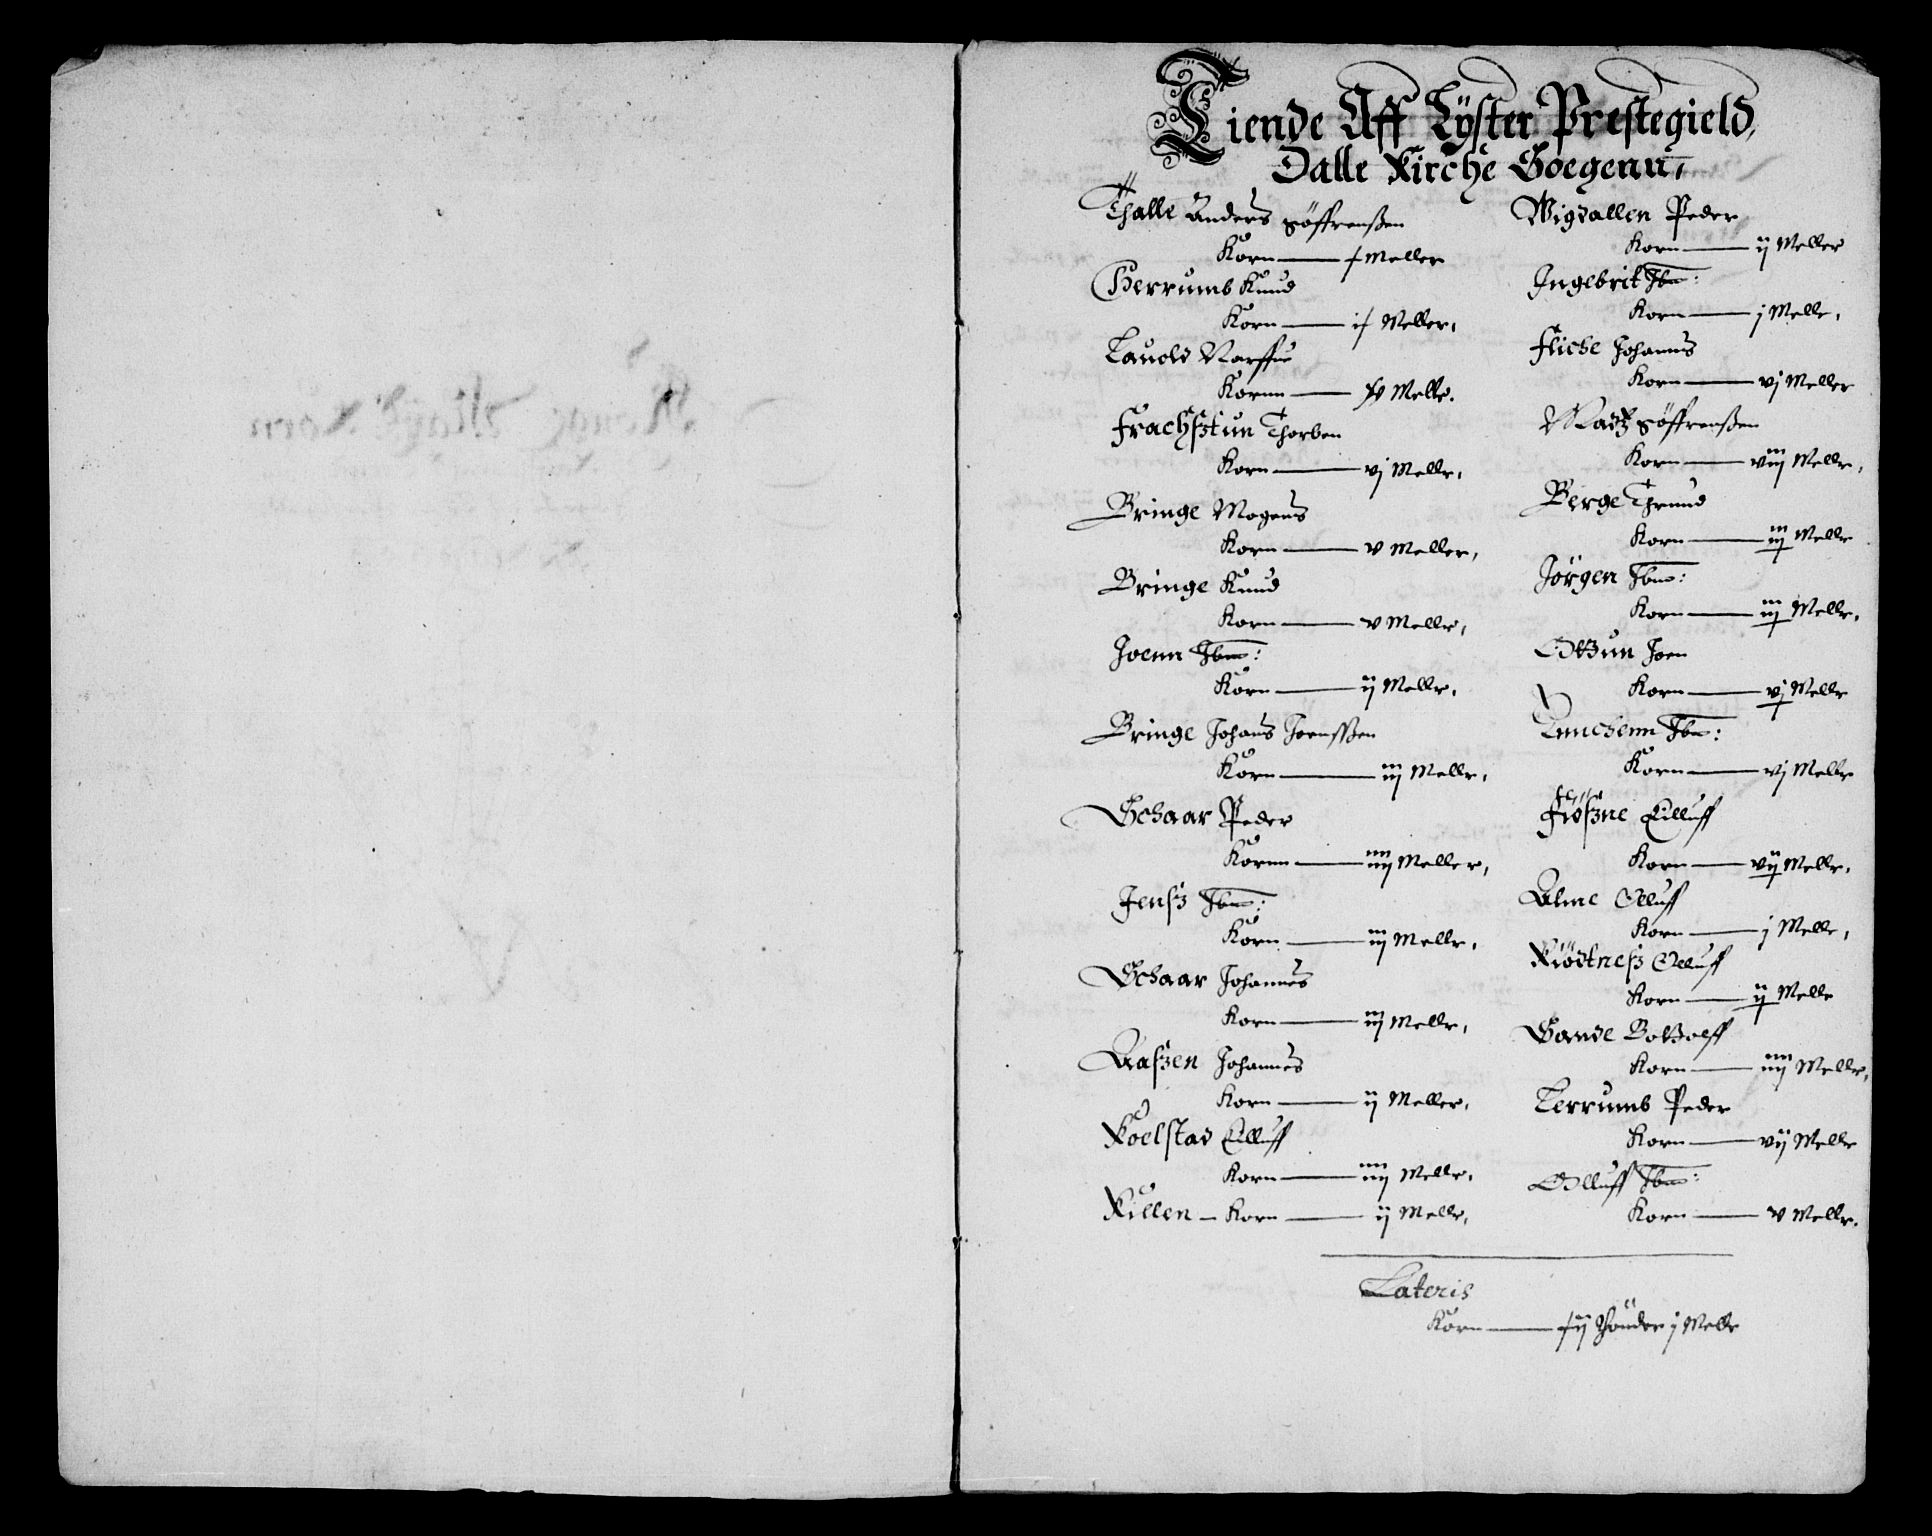 Tiende Aff Lÿster Prestegield,
Dalle Kirche Soegenn,
Thalle Anders Söffrenßen
Korn — x Meller
Herrumb Knud
Korn — ix Meller,
Lauold Narffue
Kornn — xv Melle.
Frachsztun Thorben
Korn — vj Melle,
Bringe Mogens
Korn — v Meller,
Bringe Knud
Korn — v Melle,
Joenn Ibm:
Korn — ij Melle,
Bringe Johans Joensßen
Korn — iij Melle,
Schaar Peder
Kornn — iiij Meller,
Jensz Ibm:
Korn — iij Melle,
Schaar Johannes
Korn — iij Melle,
Aaszen Johannes
Korn — ij Meller,
Koelstad Eilluff
Korn — iiij Melle,
Killen – Korn — ij Melle,
Wigdallen Peder
Korn — ij Meller
Ingebrit Ibm:
Korn — j Melle,
Fliche Johanns
Korn — vj Meller
Madtz Söffrenßen
Korn — viij Melle,
Berge Thrund
Korn — iij Melle
Jörgen Ibm:
Korn — iij Melle,
Ottzun Joen
Korn — vj Melle
Ibm:
Korn — vj Melle
Fiöszne Eilluff
Korn — vij Melle,
Alme Olluff
Korn — j Melle,
Kiödtnesz Olluff
Korn — ij Melle
Sande Bottzolff
Korn — iiij Melle,
Lerrumb Peder
Korn — vij Melle
Olluff Ibm:
Korn — v Melle,
Lateris
Korn — xij Thönder j Melle